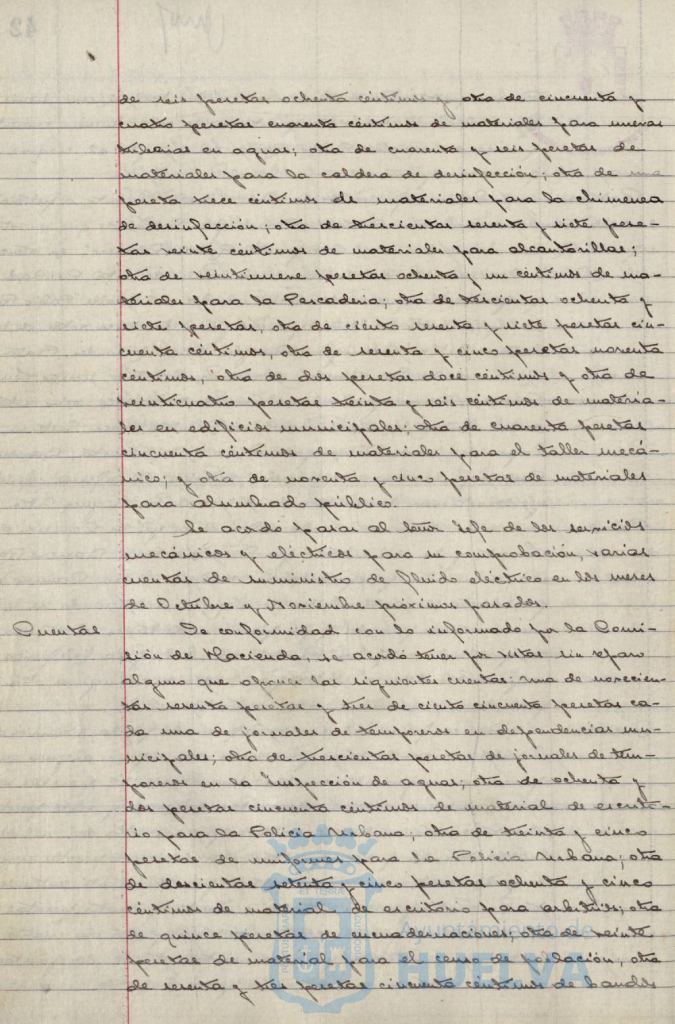 de seis pesetas ochenta céntimos y otra de cincuenta y
cuatro pesetas cuarenta céntimos de materiales para nuevas
tuberias en aguas; otra de cuarenta y seis pesetas de
materiales para la caldera de desinfección; otra de una
peseta trece céntimos de materiales para la chimenea
de desinfección; otra de trescientas sesenta y siete pese-
tas veinte céntimos de materiales para alcantarillas;
otra de veintinueve pesetas ochenta y un céntimos de ma-
teriales para la Pescaderia; otra de trescientas ochenta y
siete pesetas, otra de ciento sesenta y siete pesetas cin-
cuenta céntimos, otra de sesenta y cinco pesetas noventa
céntimos, otra de dos pesetas doce céntimos y otra de
veinticuatro pesetas treinta y seis céntimos de materia-
les en edificios municipales; otra de cuarenta pesetas
cincuenta céntimos de materiales para el taller mecá-
nico; y otra de noventa y cinco pesetas de materiales
para alumbrado público.
Se acordó pasar al Señor Jefe de los servicios
mecánicos y eléctricos para su comprobación, varias
cuentas de suministro de fluido eléctrico en los meses
de Octubre y Noviembre próximos pasados.
Cuentas
De conformidad con lo informado por la Comi-
sión de Hacienda, se acordó tener por vistas sin reparo
alguno que oponer las siguientes cuentas: una de novecien-
tas sesenta pesetas y tres de ciento cincuenta pesetas ca-
da una de jornales de temporeros en dependencias mu-
nicipales; otra de trescientas pesetas de jornales de tem-
poreros en la Inspección de aguas; otra de ochenta y
dos pesetas cincuenta céntimos de material de escrito-
rio para la Policia Urbana; otra de treinta y cinco
pesetas de uniformes para la Policia Urbana; otra
de doscientas setenta y cinco pesetas ochenta y cinco
céntimos de material de escritorio para arbitrios; otra
de quince pesetas de encuadernaciones; otra de veinte
pesetas de material para el censo de población; otra
de sesenta y tres pesetas cincuenta céntimos de bandos
HUELVA